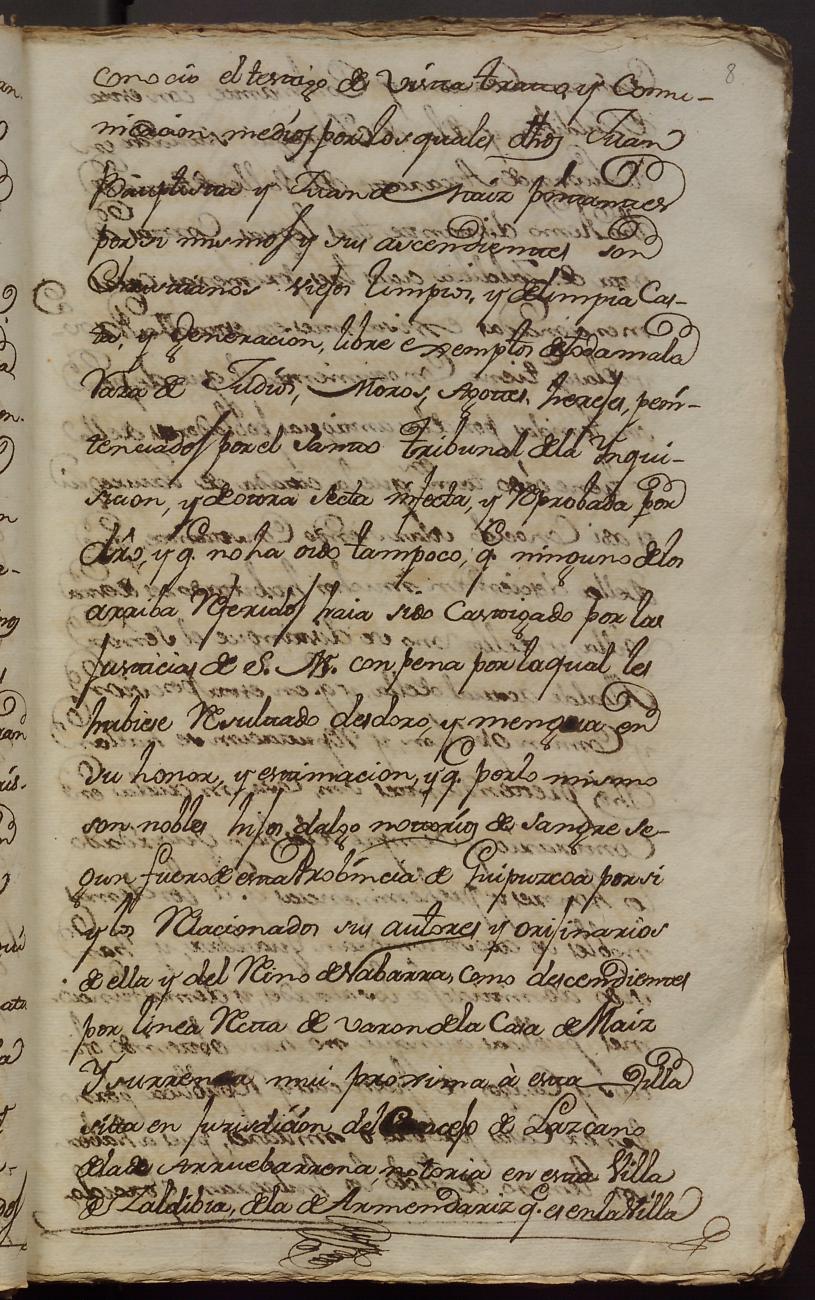 8
conocio el testigo de vista trato, y Comu-
nicacion, medios por los quales dhos Juan
Bauptista y Juan de Maiz portantes
por si mismos y sus ascendientes son
Christianos viejos limpios, y de limpia Cas-
ta, y generacion, libres exemptos de toda mala
raza de Judios, Moros, Agotes, hereges, peni-
tenciados por el santo tribunal de la Ynqui-
sicion, y de otra secta infecta, y reprobada por
dro, y q. no ha oido tampoco, q. ninguno de los
arriba referidos haia sido Castigado por las
Justicias de S. M. con pena por la qual les
hubiese resultado desdoro, y mengua en
su honor, y estimacion, y q. por lo mismo
son nobles hijos dalgo notorios de sangre se-
gun fuero de esta Probincia de Guipuzcoa por si
y los relacionados sus autores y orijinarios
de ella y del Reino de Nabarra, como descendientes
por linea recta de varon de la Casa de Maiz
Ysurrenea mui proxima à esta Villa
sita en Jurisdicion del Concejo de Lazcano
de la de Arruebarrena, notoria en esta Villa
de Zaldibia, de la de Armendariz q. es en la Villa